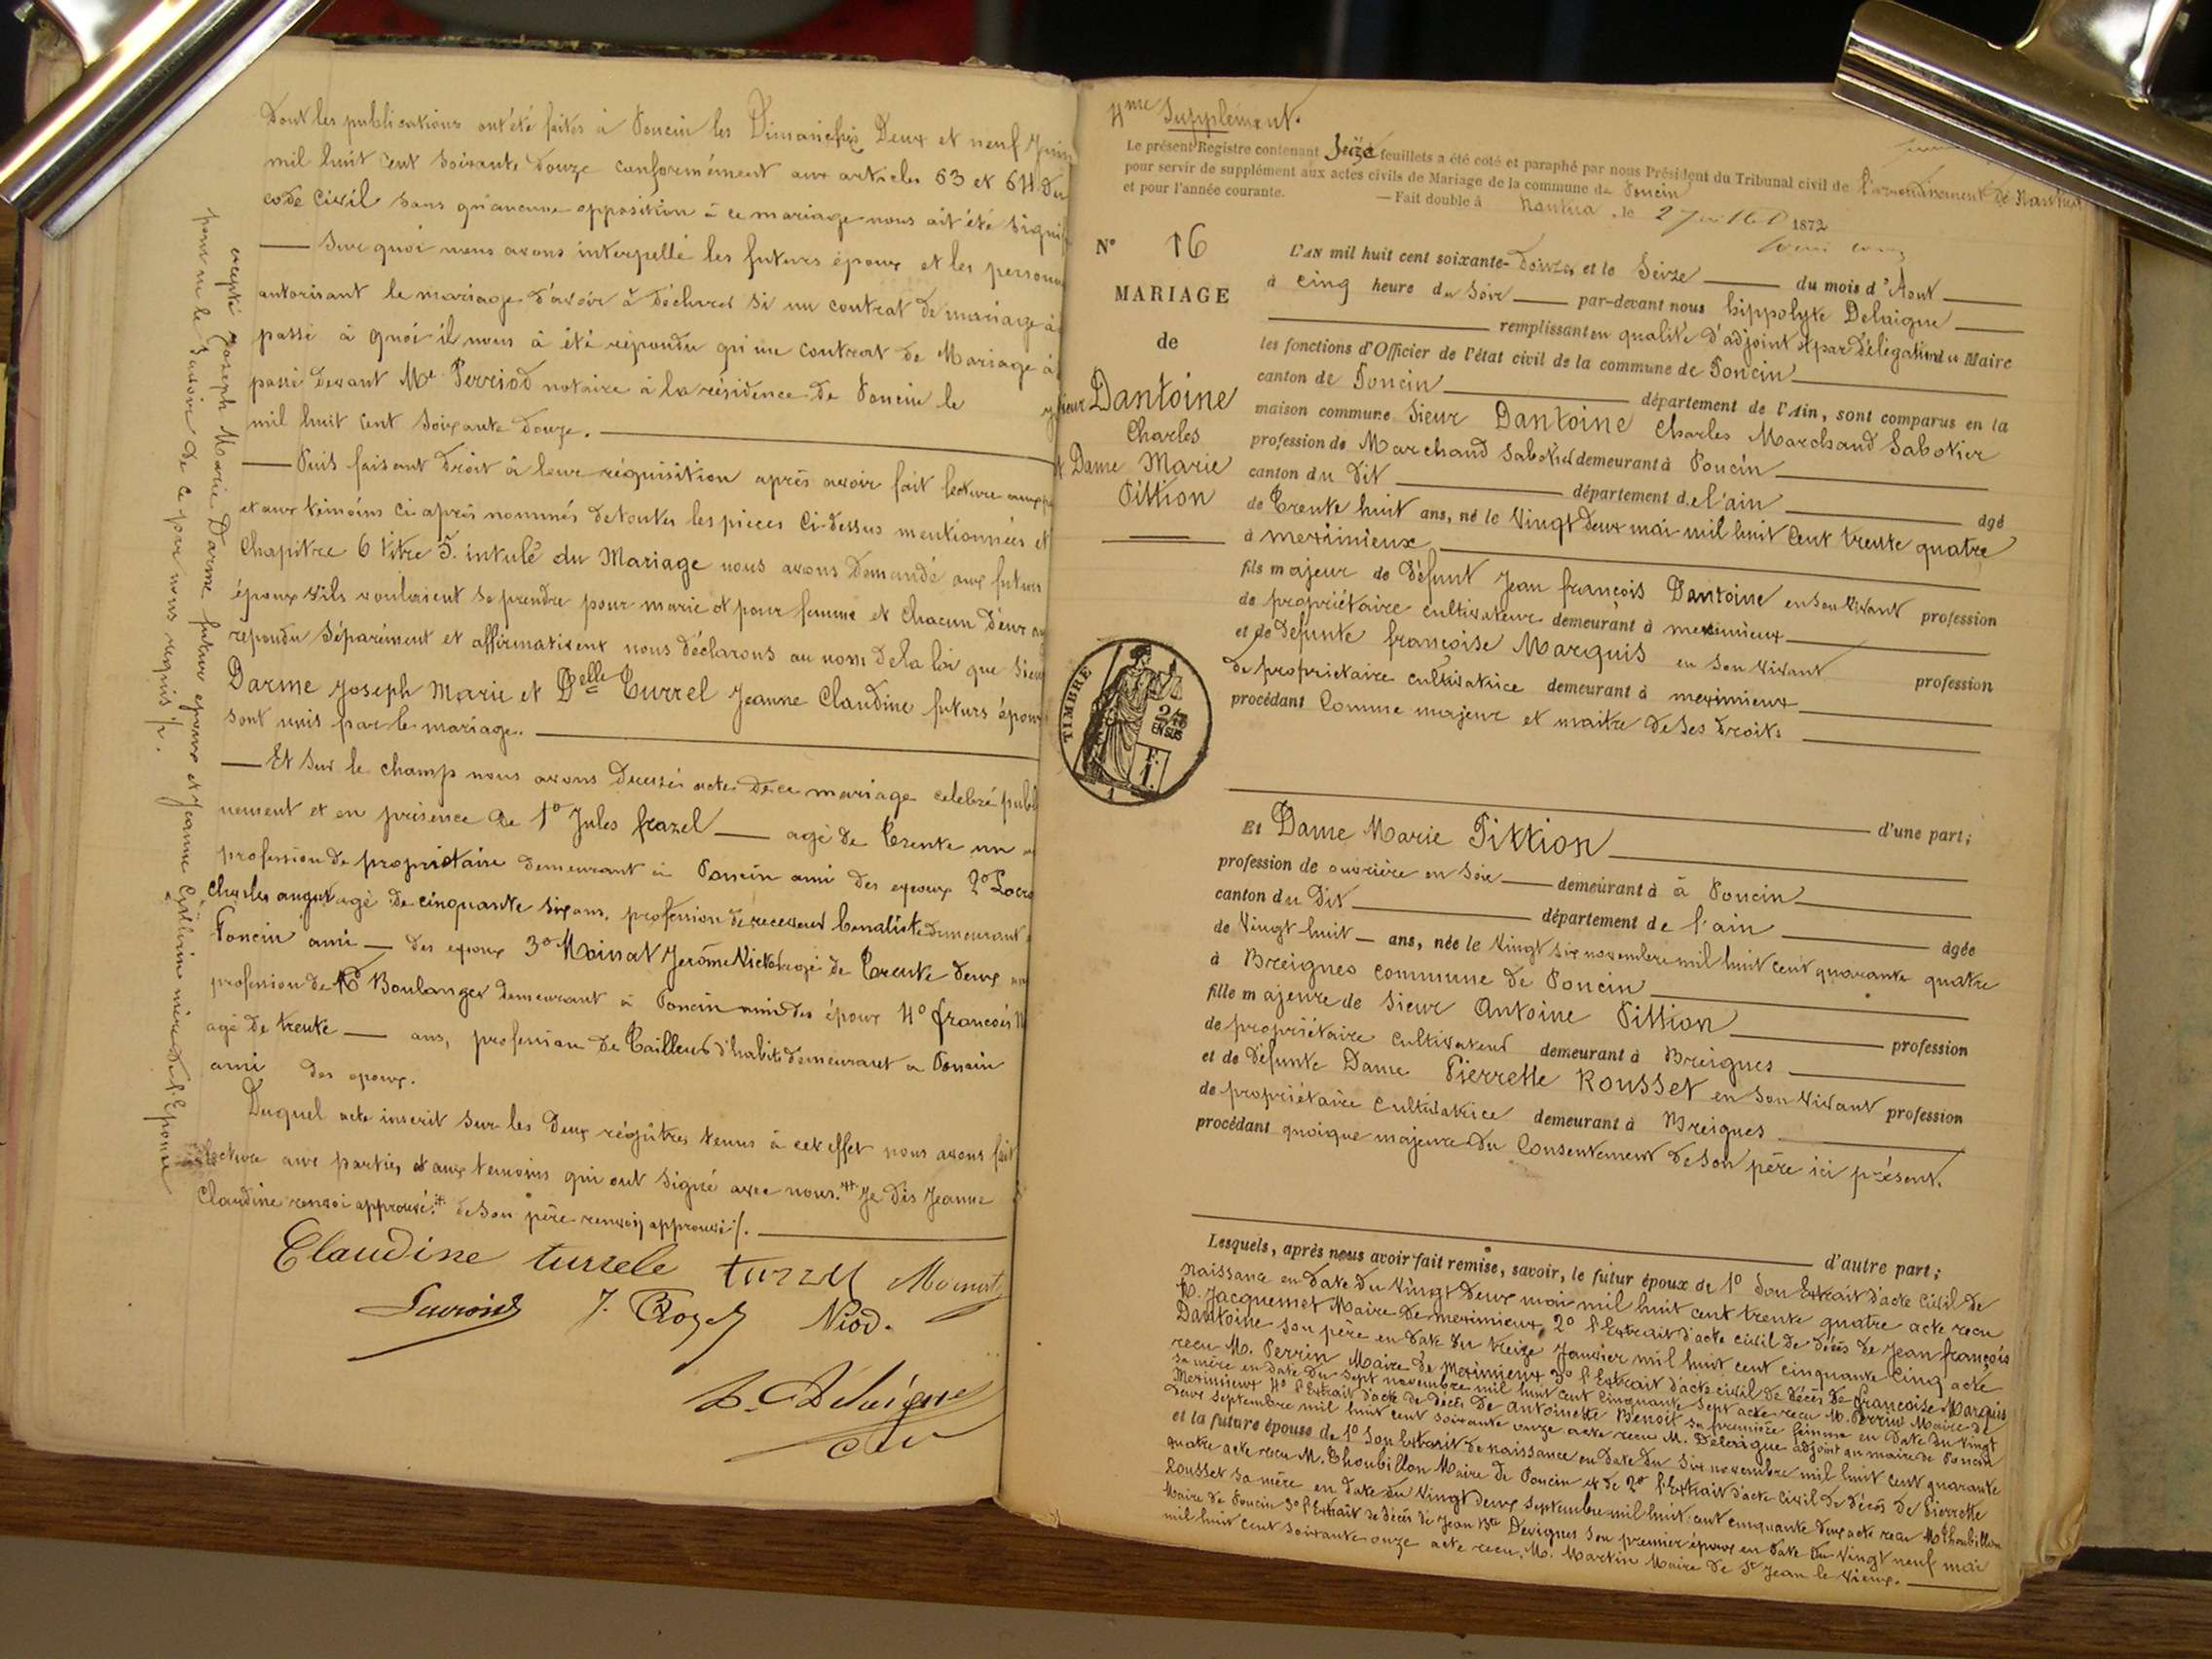 Dont les publications ont été faites à Poncin les Dimanches Deux et neuf Juin
mil huit cent soixante Douze conformément aux articles 63 et 64 du
code Civil sans qu'aucune opposition à ce mariage nous ait été signif
— Sur quoi nous avons interpellé les futurs époux et les personnes
autorisant le mariage d'avoir à déclarer si un contrat de mariage à
passé à quoi il nous à été répondu qu'un contrat de Mariage à
passé devant Me Perriod notaire à la résidence de Poncin le
mil huit cent soixante Douze.
— Puis faisant droit à leur réquisition après avoir fait lecture aux
et aux témoins ci-après nommés de toutes les pièces ci-dessus mentionnées et
Chapitre 6 titre 5. intulé du Mariage nous avons Demandé aux futurs
époux s'ils voulaient se prendre pour marie et pour femme et chacun d'eux
repondu séparément et affirmativent nous déclarons au nom de la loi que Sieur
Darme Joseph Marie et Delle Turrel Jeanne Claudine futurs époux
sont unis par le mariage.
— Et sur le champ nous avons dressé acte de ce mariage celebré publi
nement et en présence de 1° Jules frazel — agé de Trente un
profession de propriétaire demeurant à Poncin ami des epoux 2°
Charles august agé de cinquante six ans, profession de receveur buraliste demeurant
Poncin ami — des epoux 3° Moinat Jerôme Victor agé de Trente deux
profession de Boulanger demeurant à Poncin ami des époux 4° françois
agé de trente — ans, profession de Tailleur d'habits demeurant a Poncin
ami des epoux.
Duquel acte inscrit sur les Deux régitres tenus à cet effet nous avons fait
lecture aux parties et aux temoins qui ont signé avec nous. Je dis Jeanne
Claudine renvoi approuvé. de son père renvoi approuvé.
excepté Joseph Marie Darme futur epoux et Jeanne mère de l'Epouse
pour ne le savoir de ce par nous requis.
Claudine turrele turrel Moinat
J. Niod.
Delaigne
4me Supplément.
Le présent Registre contenant Seize feuillets a été coté et paraphé par nous Président du Tribunal civil de l'arrondissement de Nantua
pour servir de supplément aux actes civils de Mariage de la commune de Poncin
et pour l'année courante. — Fait double à Nantua, le 2 Juillet 1872
N° 16
MARIAGE
de
Sieur Dantoine
Charles
et Dame Marie
Pittion
TIMBRE
2/10
EN SUS
F.
1.
L'AN mil huit cent soixante-Douze, et le Seize du mois d'Aout
à cinq heure du Soir par-devant nous hippolyte Delaigne
remplissant en qualité d'adjoint et par délégation du Maire
les fonctions d'Officier de l'état civil de la commune de Poncin
canton de Poncin département de l'Ain, sont comparus en la
maison commune Sieur Dantoine Charles Marchand Sabotier
profession de Marchand Sabotier demeurant à Poncin
canton du Dit département de l'ain
de Trente huit ans, né le Vingt Deux mai mil huit cent trente quatre âgé
à meximieux
fils majeur de Défunt Jean françois Dantoine en son vivant profession
de propriétaire cultivateur demeurant à meximieux
et de défunte françoise Marquis en son vivant profession
de propriétaire cultivatrice demeurant à meximieux
procédant Comme majeur et maitre de ses droits
d'une part;
Et Dame Marie Pittion
profession de ouvrière en soie demeurant à à Poncin
canton du Dit département de l'ain âgée
de Vingt huit — ans, née le Vingt six novembre mil huit cent quarante quatre
à Breignes commune de Poncin
fille majeure de Sieur Antoine Pittion profession
de propriétaire cultivateur demeurant à Breignes
et de Défunte Dame Pierrette Rousset en son vivant profession
de propriétaire cultivatrice demeurant à Breignes
procédant quoique majeure du Consentement de son père ici présent.
d'autre part;
Lesquels, après nous avoir fait remise, savoir, le futur époux de 1° Son Extrait d'acte Civil de
naissance en date du Vingt Deux mai mil huit cent trente quatre acte recu
M. Jacquemet Maire de meximieux, 2° l'Extrait d'acte civil de décès de Jean françois
Dantoine son père en date du treize Janvier mil huit cent cinquante Cinq acte
recu M. Perrin Maire de Meximieux 3° l'Extrait d'acte civil de décès de françoise Marquis
sa mère en date du sept novembre mil huit cent cinquante sept acte recu M. Perrin Maire de
Meximieux 4° l'Extrait d'acte de décès de Antoinette Benoit sa première femme en date du vingt
Deux septembre mil huit cent soixante onze acte recu M. Delaigue adjoint au maire de Poncin
et la future épouse de 1° Son Extrait de naissance en Date du Six novembre mil huit cent quarante
quatre acte recu M. Thoubillon Maire de Poncin et de 2° l'Extrait d'acte Civil de décès de Pierrette
Rousset sa mère en date du Vingt deux septembre mil huit cent cinquante deux acte recu M. Thoubillon
Maire de Poncin 3° l'Extrait de décès de Jean Bte Devignes son premier époux en date du Vingt neuf mai
mil huit cent soixante onze acte recu, M. Martin Maire de St Jean le Vieux.